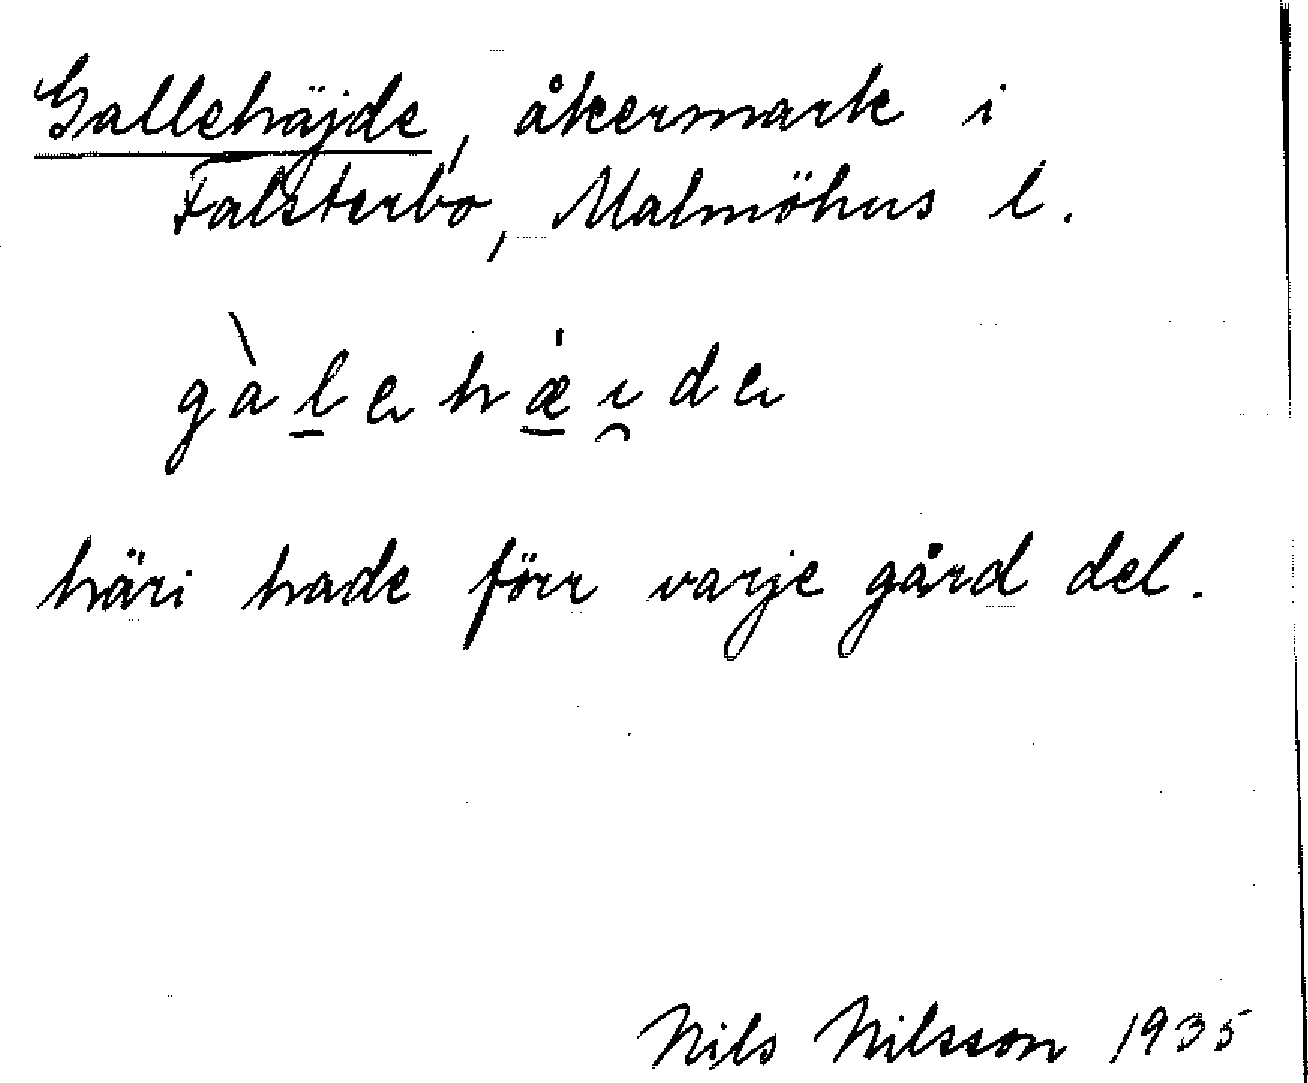 Gallehäjde, åkermark i
Falsterbo, Malmöhus l.
gàlehæ̍i̯de
häri hade förr varje gård del.
Nils Nilsson 1935